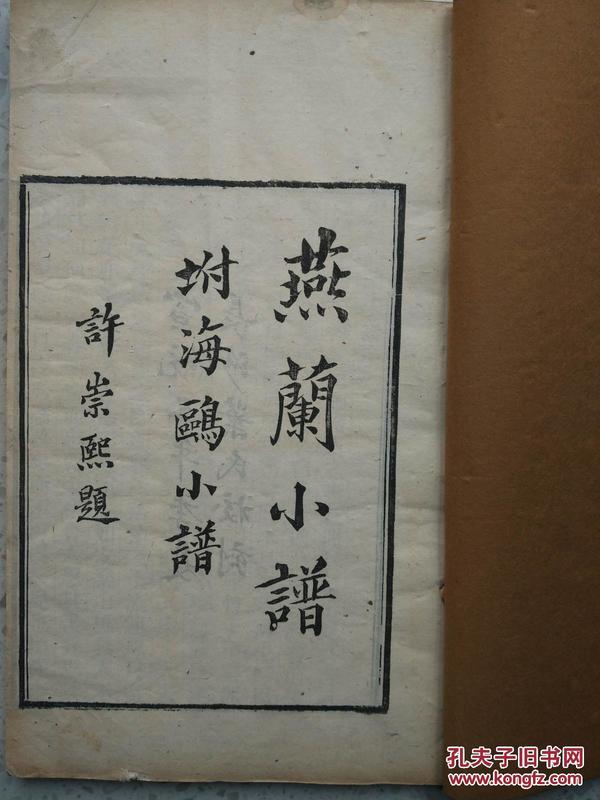 燕蘭小譜
坿海鷗小譜
許崇熙題
孔夫子旧书网
www.kongfz.com